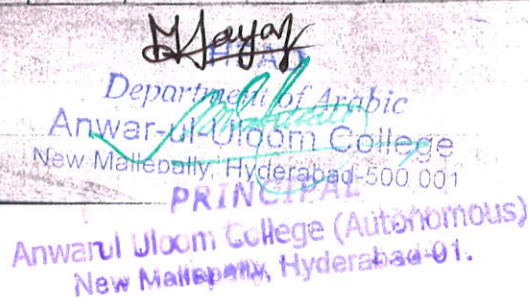 HEAD
Department of Arabic
Anwar-ul-Uloom College
New Mallepally, Hyderabad-500 001
PRINCIPAL
Anwarul Uloom College (Autonomous)
New Mallepally, Hyderabad-01.